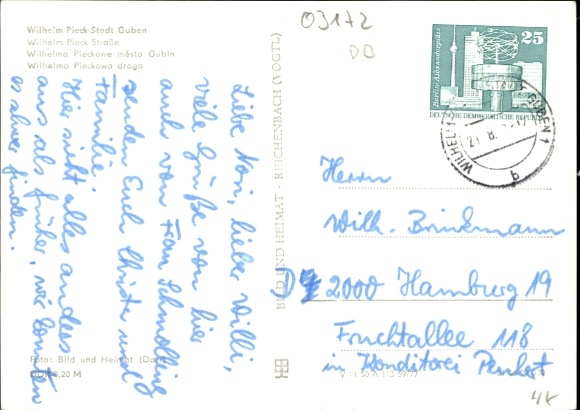 03172
DD
Wilhelm Pieck-Stadt Guben
Wilhelm Pieck-Straße
Wilhelma Pieckowe město Gubin
Wilhelma Pieckowa droga
Liebe Nori, lieber Willi,
viele Grüße von hier
auch von Frau Schmolling
senden Euch Christa und
Familie.
Hier sieht alles anders
aus als früher, wir konnten
es schwer finden.
Foto: Bild und Heimat
DDR 0,20 M
BILD UND HEIMAT · REICHENBACH (VOGTL)
25
Berlin-Alexanderplatz
DEUTSCHE DEMOKRATISCHE REPUBLIK
WILHELM
GUBEN 1
b
Herrn
Wilh. Brinkmann
D 2000 Hamburg 19
Fruchtallee 118
in Konditorei